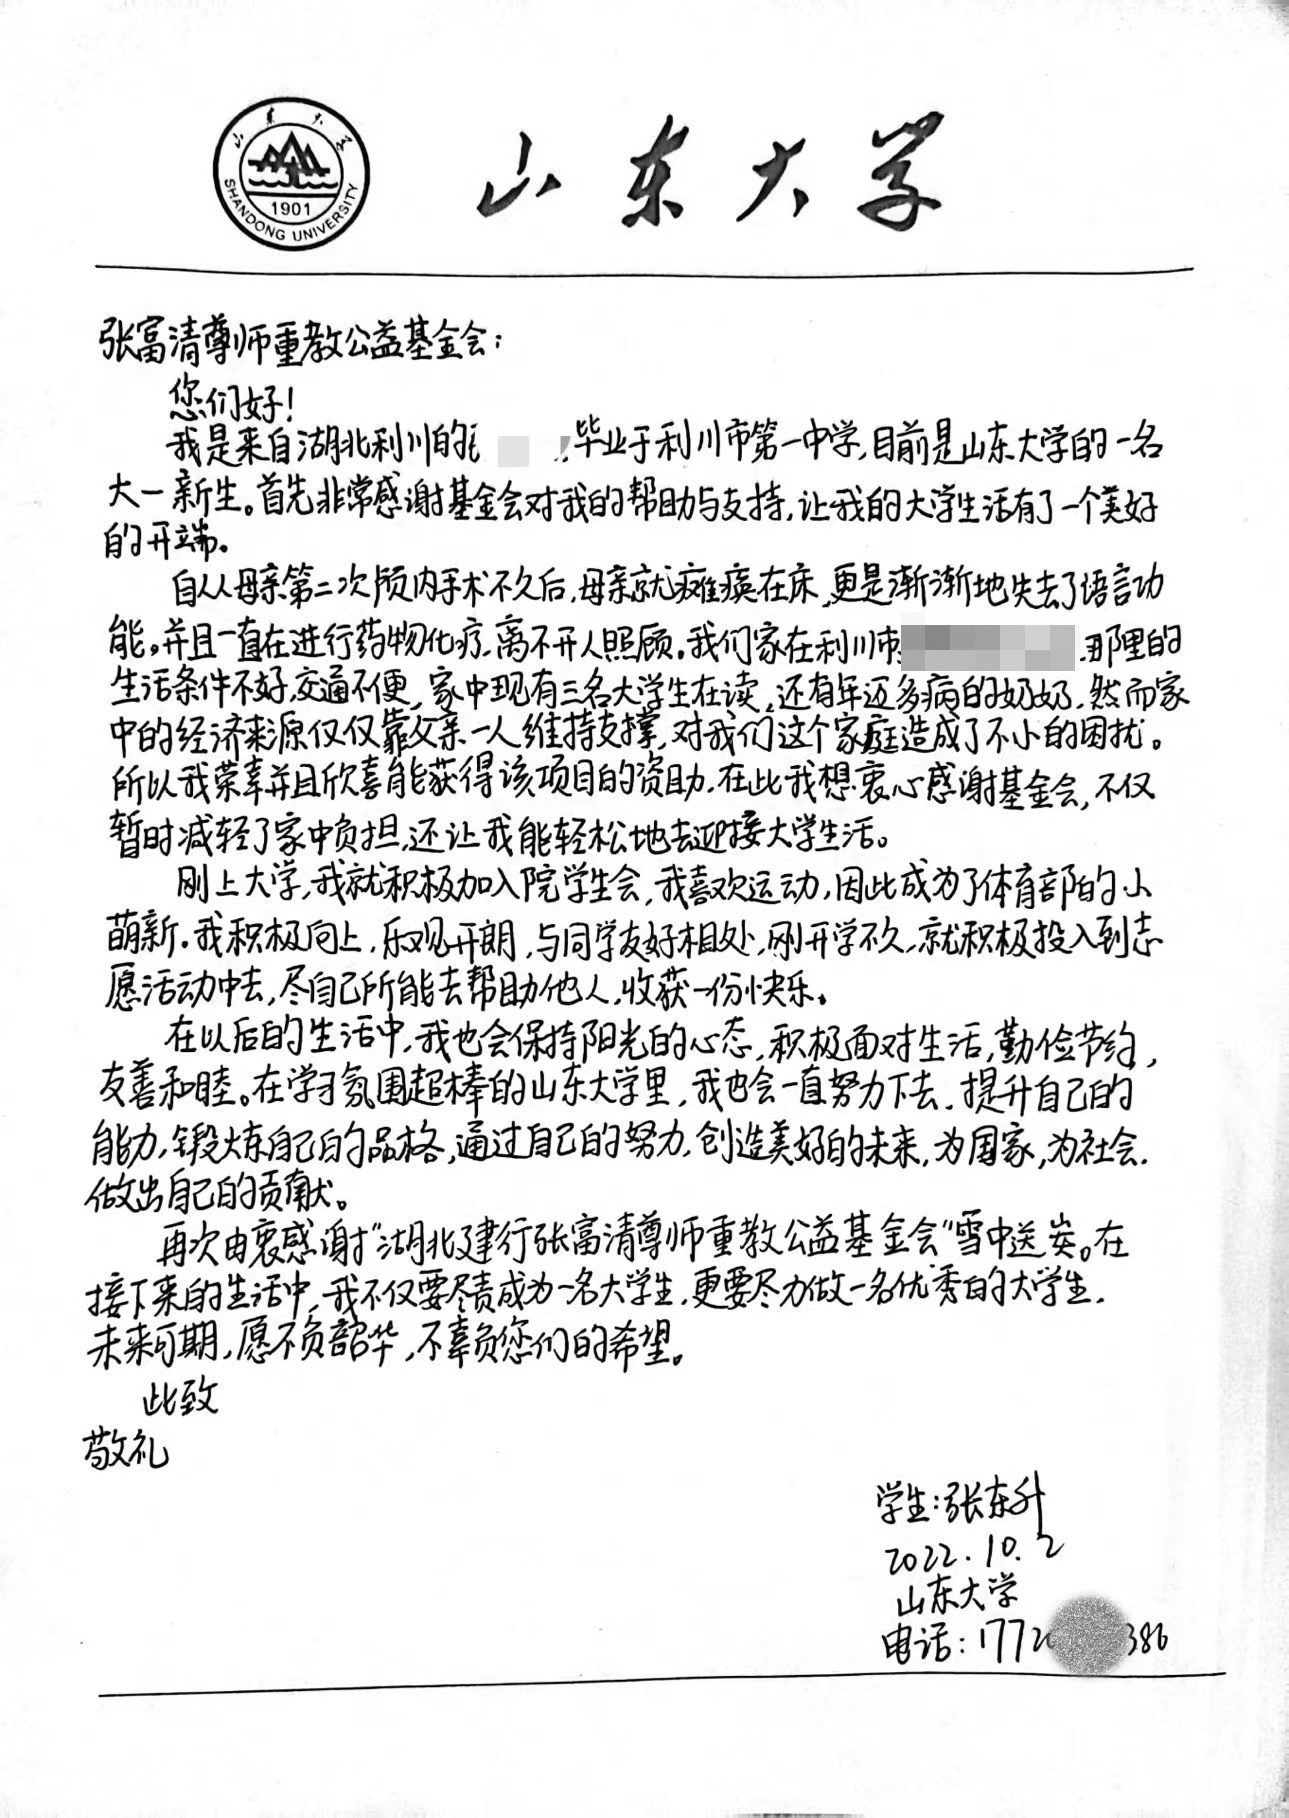 山东大学
SHANDONG UNIVERSITY
1901
山东大学
张富清尊师重教公益基金会:
您们好!
我是来自湖北利川的 ,毕业于利川市第一中学,目前是山东大学的一名
大一新生。首先非常感谢基金会对我的帮助与支持,让我的大学生活有了一个美好
的开端。
自从母亲第二次颅内手术不久后,母亲就瘫痪在床,更是渐渐地失去了语言功
能。并且一直在进行药物化疗,离不开人照顾。我们家在利川市 ,那里的
生活条件不好,交通不便,家中现有三名大学生在读,还有年迈多病的奶奶,然而家
中的经济来源仅仅靠父亲一人维持支撑,对我们这个家庭造成了不小的困扰。
所以我荣幸并且欣喜能获得该项目的资助,在此我想衷心感谢基金会,不仅
暂时减轻了家中负担,还让我能轻松地去迎接大学生活。
刚上大学,我就积极加入院学生会,我喜欢运动,因此成为了体育部的小
萌新。我积极向上,乐观开朗,与同学友好相处,刚开学不久,就积极投入到志
愿活动中去,尽自己所能去帮助他人,收获一份快乐。
在以后的生活中,我也会保持阳光的心态,积极面对生活,勤俭节约,
友善和睦。在学习氛围超棒的山东大学里,我也会一直努力下去,提升自己的
能力,锻炼自己的品格,通过自己的努力,创造美好的未来,为国家,为社会,
做出自己的贡献。
再次由衷感谢"湖北建行张富清尊师重教公益基金会"雪中送炭。在
接下来的生活中,我不仅要尽责成为一名大学生,更要尽力做一名优秀的大学生,
未来可期,愿不负韶华,不辜负您们的希望。
此致
敬礼
学生:张东升
2022.10.2
山东大学
电话:1772 386